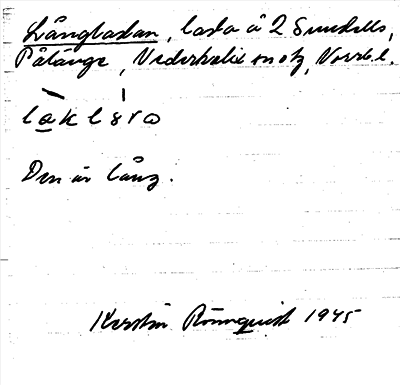 Långladan, lada å 2 Sundells,
Pålänge, Nederkalix snotz, Norrb.l.
lakləro
Den är lång.
Kerstin Rönnquist 1945